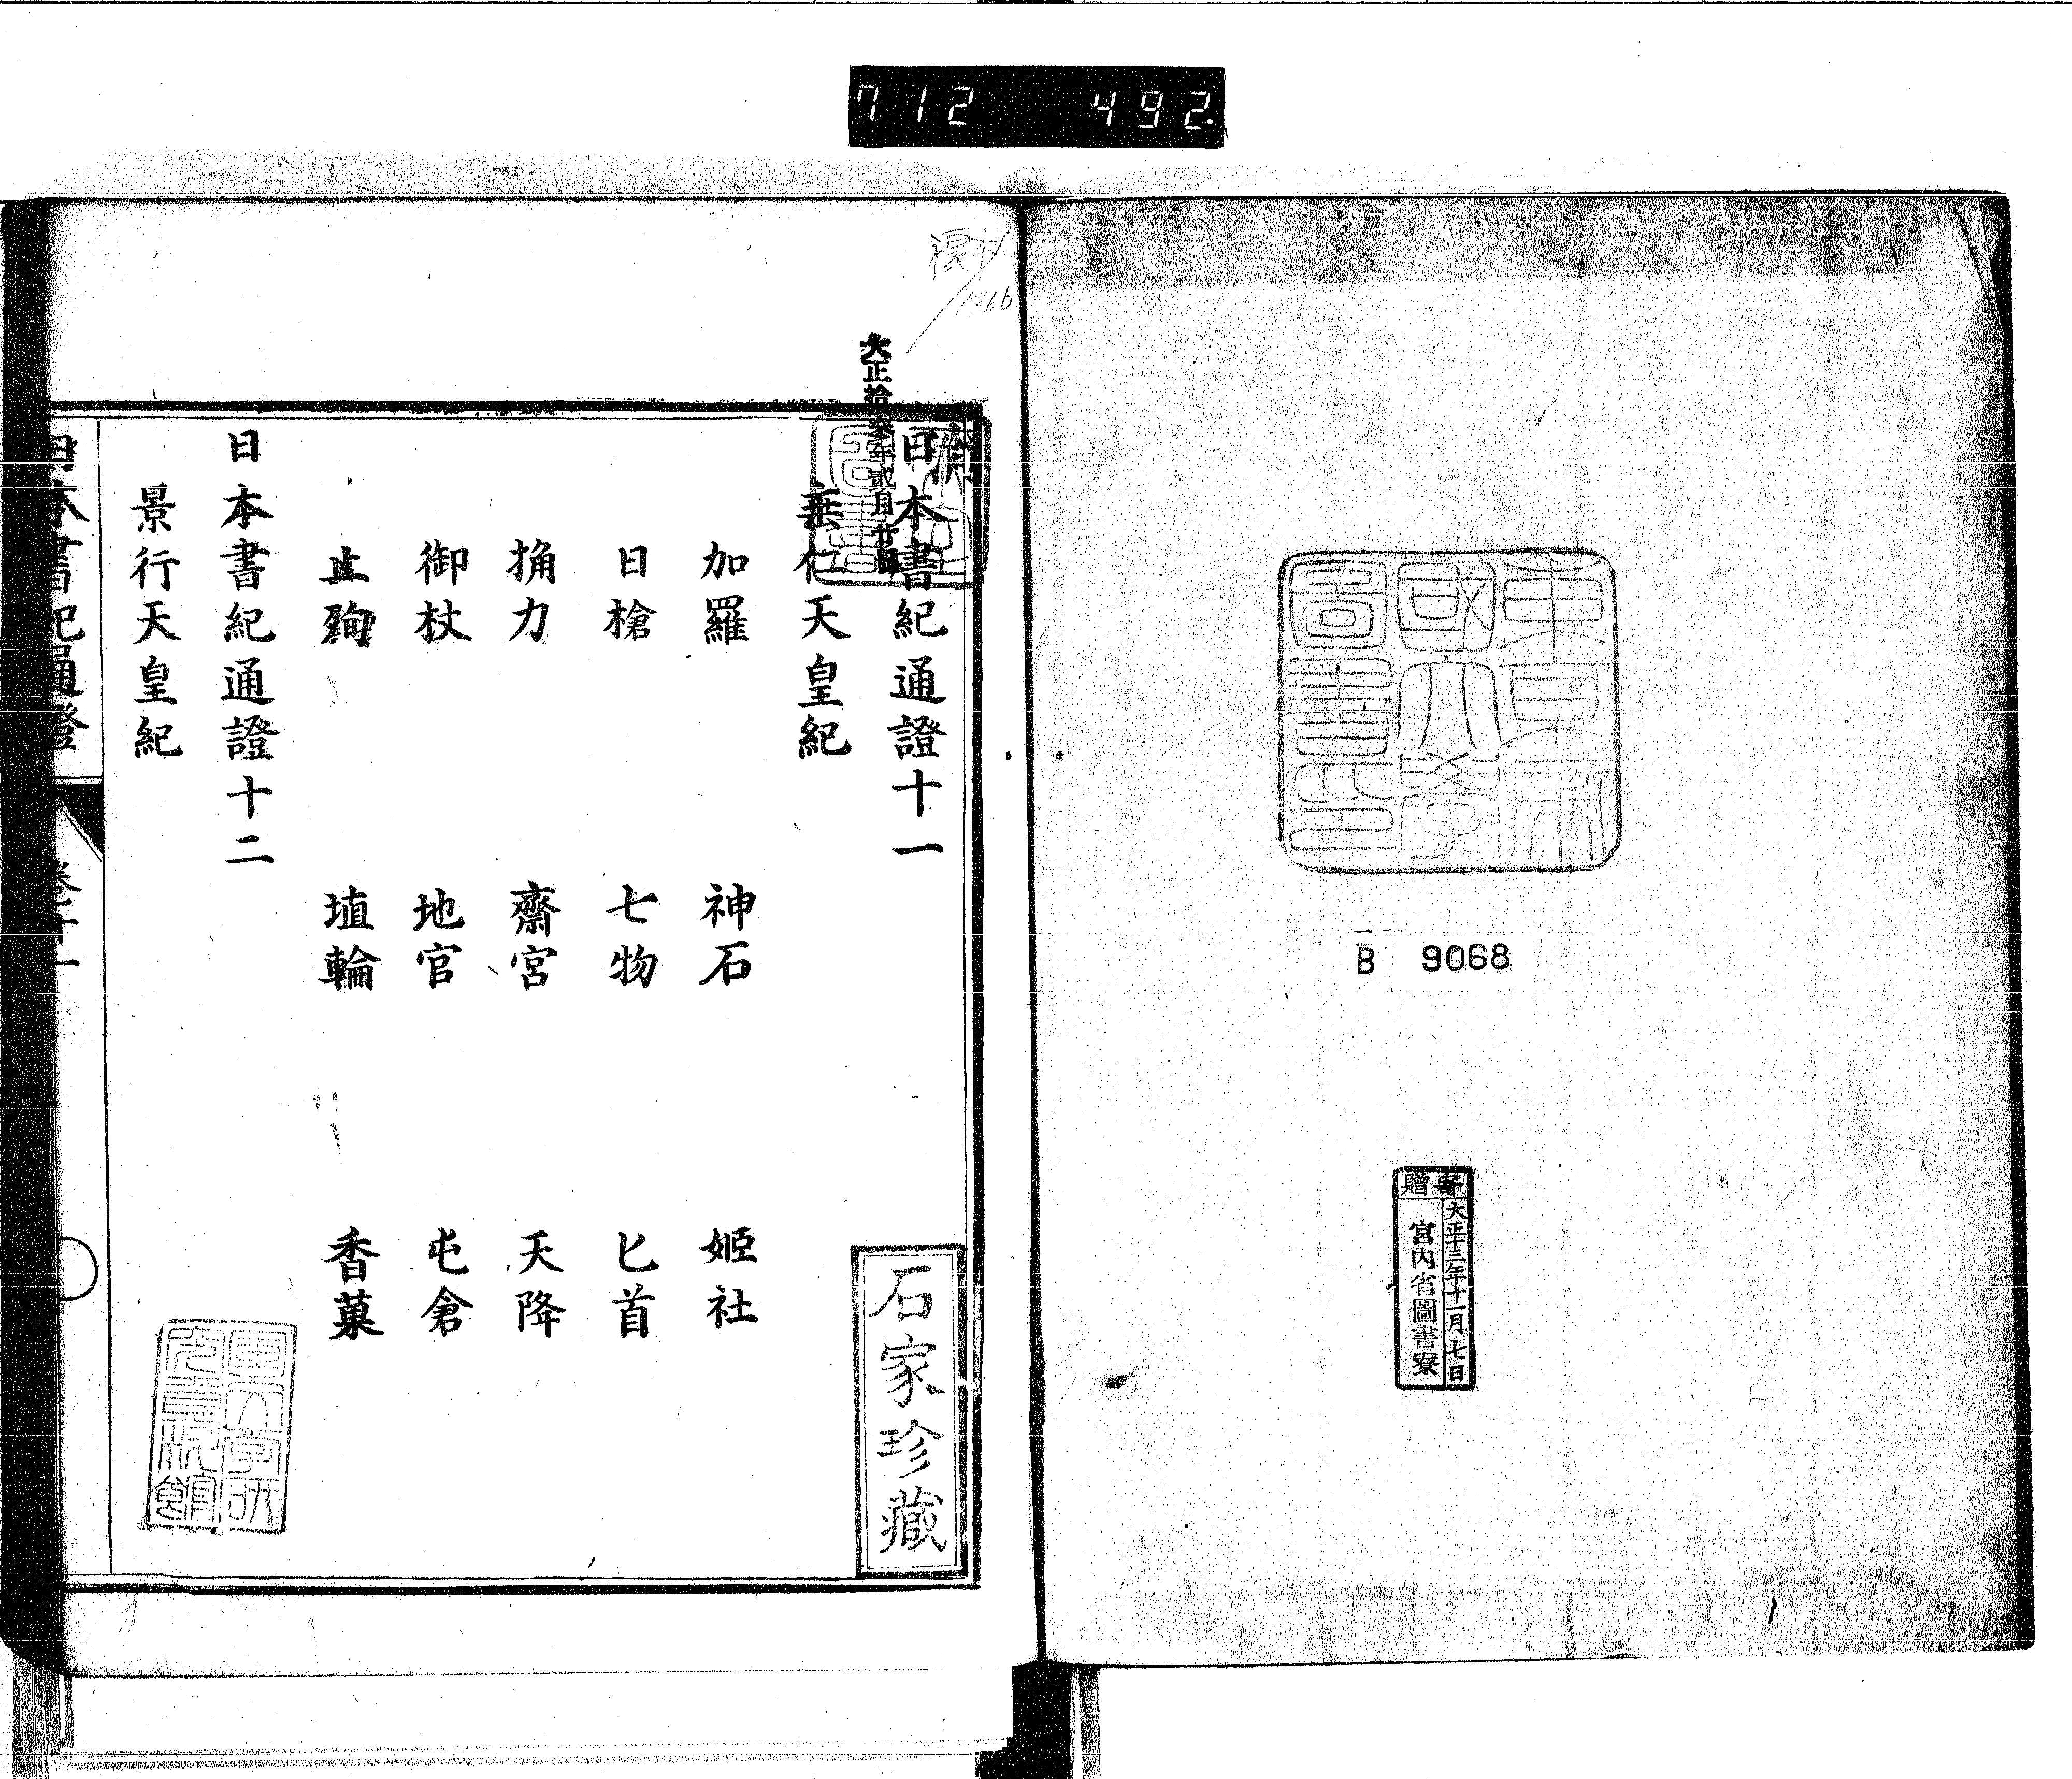 712 492.
東京帝
國大學
圖書印
B 9068
寄贈
大正十三年十一月七日
宮內省圖書寮
大正拾參年貳月廿日
日本書紀通證十一
垂仁天皇紀
加羅 神石 姬社
日槍 七物 匕首
捔力 齋宮 天降
御杖 地官 屯倉
止殉 埴輪 香菓
日本書紀通證十二
景行天皇紀
石家珍藏
日本書紀通證 卷十一